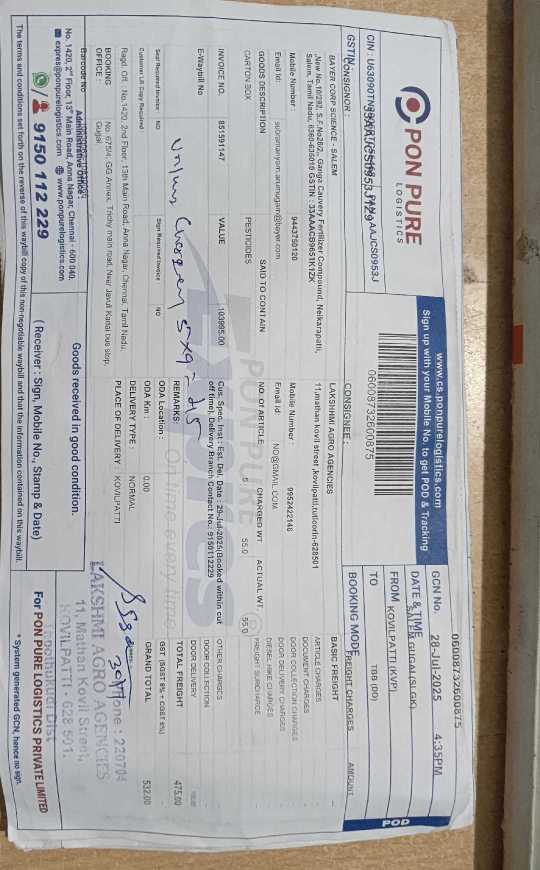 PON PURE
LOGISTICS
www.cs.ponpurelogistics.com
Sign up with your Mobile No. to get POD & Tracking
06008732600875
GCN No. 06008732600875
DATE & TIME 28-Jul-2025 4:35PM
FROM SALEM GUGAI (SLGK)
TO KOVILPATTI (KVP)
BOOKING MODE TBB (DD)
POD
GSTIN:
CONSIGNOR :
BAYER CORP SCIENCE - SALEM
Salem, Tamil Nadu, 6360435010 GSTIN : 33AAACB9651K1ZK
Mobile Number : 9443750120
Email Id: subramanyom.arumugam@bayer.com
CONSIGNEE :
LAKSHHMI AGRO AGENCIES
11,mathan kovil street ,kovilpatti,tuticorin-628501
Mobile Number : 9952422148
Email id: NO@GMAIL.COM
FREIGHT CHARGES AMOUNT
BASIC FREIGHT -
ARTICLE CHARGES -
DOCUMENT CHARGES
DOOR COLLECTION CHARGES
DOOR DELIVERY CHARGES
DIESEL HIKE CHARGES
FREIGHT SURCHARGE
OTHER CHARGES
DOOR COLLECTION
DOOR DELIVERY
TOTAL FREIGHT 475.00
GRAND TOTAL 532.00
GOODS DESCRIPTION SAID TO CONTAIN NO. OF ARTICLE CHARGED WT ACTUAL WT.
CARTON BOX PESTICIDES 5 55.0 55.0
INVOICE NO. 851591147 VALUE 103995.00
E-Waybill No
Cus. Spec. Inst : Est. Del. Date : 29-Jul-2025(Booked within cut
off time), Delivery Branch Contact No.: 9150112229
REMARKS:
ODA Location :
ODA Km : 0.00
DELIVERY TYPE : NORMAL
PLACE OF DELIVERY : KOVILPATTI
Seal Required Invoice NO Sign Required Invoice NO
Customer LR Copy Required
5x9=45
Regd. Off : No.1420, 2nd Floor, 13th Main Road, Anna Nagar, Chennai, Tamil Nadu.
BOOKING OFFICE :
No. 675/4, GG Annex, Trichy main road, Near Javuli Kadai bus stop,
Gugai
Administrative Office :
No. 1420, 2nd Floor, 13th Main Road, Anna Nagar, Chennai - 600 040.
express@ponpurelogistics.com www.ponpurelogistics.com
9150 112 229
Goods received in good condition.
( Receiver : Sign, Mobile No., Stamp & Date)
Phone : 220704
LAKSHMI AGRO AGENCIES
11, Mathan Kovil Street,
KOVILPATTI - 628 501.
For PON PURE LOGISTICS PRIVATE LIMITED
The terms and conditions set forth on the reverse of this waybill copy of this non-negotiable waybill and that the information contained on this waybill.
* System generated GCN, hence no sign.